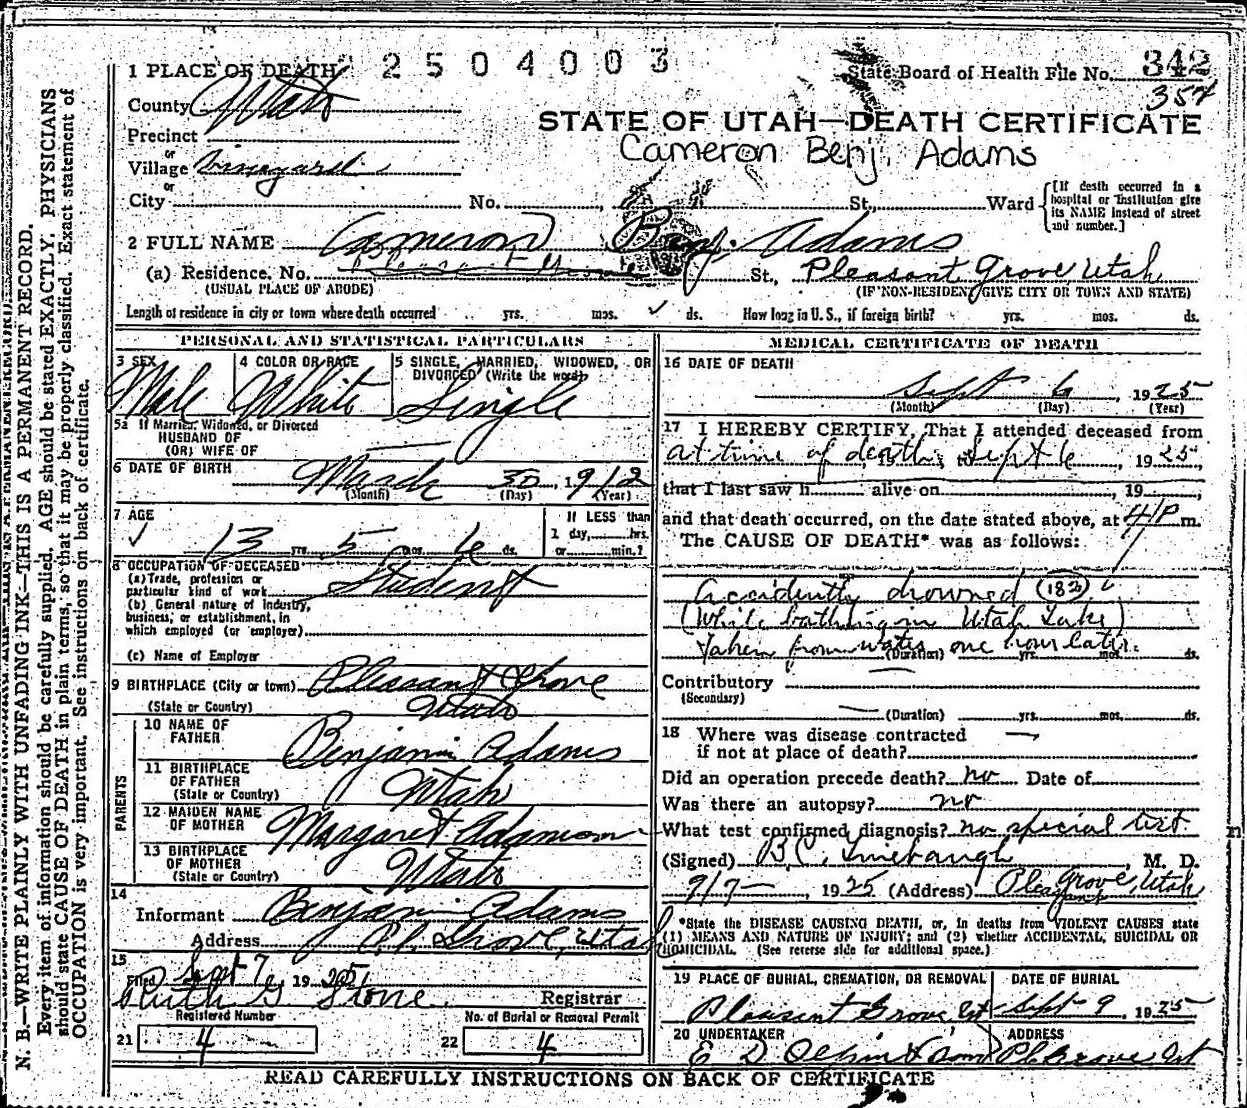 2504003
State Board of Health File No. 342
357
1 PLACE OF DEATH
County Utah
STATE OF UTAH—DEATH CERTIFICATE
Precinct
Cameron Benj. Adams
or
Village Vineyard
or
City No. St., Ward
[If death occurred in a hospital or institution give its NAME instead of street and number.]
2 FULL NAME Cameron Benj. Adams
(a) Residence, No. Pleasant Grove St., Pleasant Grove Utah
(USUAL PLACE OF ABODE) (IF NON-RESIDENT GIVE CITY OR TOWN AND STATE)
Length of residence in city or town where death occurred yrs. mos. ds. How long in U. S., if foreign birth? yrs. mos. ds.
PERSONAL AND STATISTICAL PARTICULARS
3 SEX Male
4 COLOR OR RACE White
5 SINGLE, MARRIED, WIDOWED, OR DIVORCED (Write the word) Single
5a If Married, Widowed, or Divorced
HUSBAND OF
(OR) WIFE OF
6 DATE OF BIRTH March 30, 1912
(Month) (Day) (Year)
7 AGE 13 yrs. 5 mos. 6 ds.
If LESS than 1 day, hrs. or min.?
8 OCCUPATION OF DECEASED
(a) Trade, profession or particular kind of work Student
(b) General nature of industry, business, or establishment, in which employed (or employer)
(c) Name of Employer
9 BIRTHPLACE (City or town) Pleasant Grove
(State or Country) Utah
PARENTS
10 NAME OF FATHER Benjamin Adams
11 BIRTHPLACE OF FATHER Utah
(State or Country)
12 MAIDEN NAME OF MOTHER Margaret Adamson
13 BIRTHPLACE OF MOTHER Utah
(State or Country)
14
Informant Benjamin Adams
Address Pl. Grove, Utah
15
Filed Sept 7 1925
Ruth G Stone Registrar
Registered Number No. of Burial or Removal Permit
21 4 22 4
MEDICAL CERTIFICATE OF DEATH
16 DATE OF DEATH
Sept 6, 1925
(Month) (Day) (Year)
17 I HEREBY CERTIFY, That I attended deceased from
at time of death, Sept 6, 1925,
that I last saw h alive on , 19 ,
and that death occurred, on the date stated above, at 4 P m.
The CAUSE OF DEATH* was as follows:
Accidently drowned (182)
(While bathing in Utah Lake)
Taken from water one hour later.
(Duration) yrs. mos. ds.
Contributory
(Secondary)
(Duration) yrs. mos. ds.
18 Where was disease contracted
if not at place of death?
Did an operation precede death? no Date of
Was there an autopsy? no
What test confirmed diagnosis? no special test
(Signed) B C Linebaugh, M. D.
9/7 — , 1925 (Address) Pleasant Grove, Utah
*State the DISEASE CAUSING DEATH, or, in deaths from VIOLENT CAUSES state
(1) MEANS AND NATURE OF INJURY; and (2) whether ACCIDENTAL, SUICIDAL OR
HOMICIDAL. (See reverse side for additional space.)
19 PLACE OF BURIAL, CREMATION, OR REMOVAL DATE OF BURIAL
Pleasant Grove Ut Sept 9, 1925
20 UNDERTAKER ADDRESS
E D Olpin & Sons Pl Grove Ut
READ CAREFULLY INSTRUCTIONS ON BACK OF CERTIFICATE
N. B.—WRITE PLAINLY WITH UNFADING INK—THIS IS A PERMANENT RECORD.
Every item of information should be carefully supplied. AGE should be stated EXACTLY. PHYSICIANS
should state CAUSE OF DEATH in plain terms, so that it may be properly classified. Exact statement of
OCCUPATION is very important. See instructions on back of certificate.